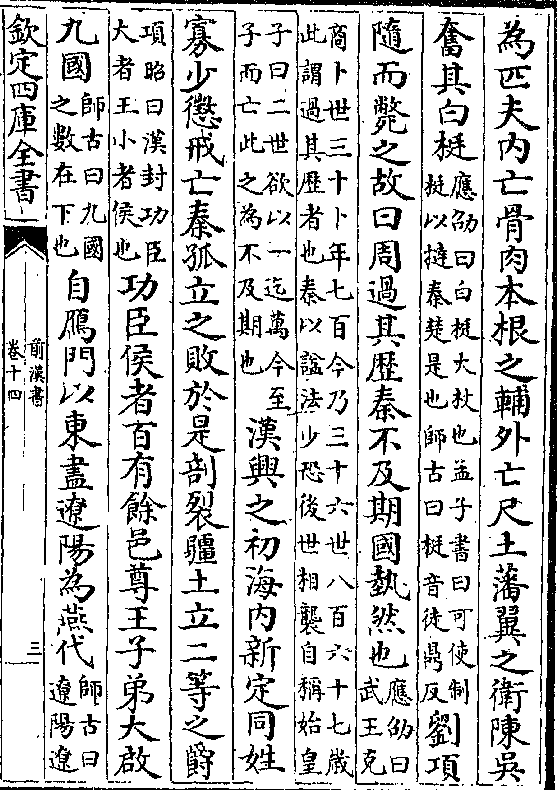 為匹夫内亡骨肉本根之輔外亡尺土藩翼之衛陳吳
奮其白梃應劭曰白梃大杖也孟子書曰可使制梃以撻秦楚是也師古曰梃音徒鼎反劉項
隨而斃之故曰周過其歷秦不及期國埶然也應劭曰武王克
商卜世三十卜年七百今乃三十六世八百六十七歲此謂過其歷者也秦以諡法少恐後世相襲自稱始皇
子曰二世欲以一迄萬今至子而亡此之為不及期也漢興之初海内新定同姓
寡少懲戒亡秦孤立之敗於是剖裂疆土立二等之爵
項昭曰漢封功臣大者王小者侯也功臣侯者百有餘邑尊王子弟大啟
九國師古曰九國之數在下也自鴈門以東盡遼陽為燕代師古曰遼陽遼
欽定四庫全書
前漢書
卷十四
三